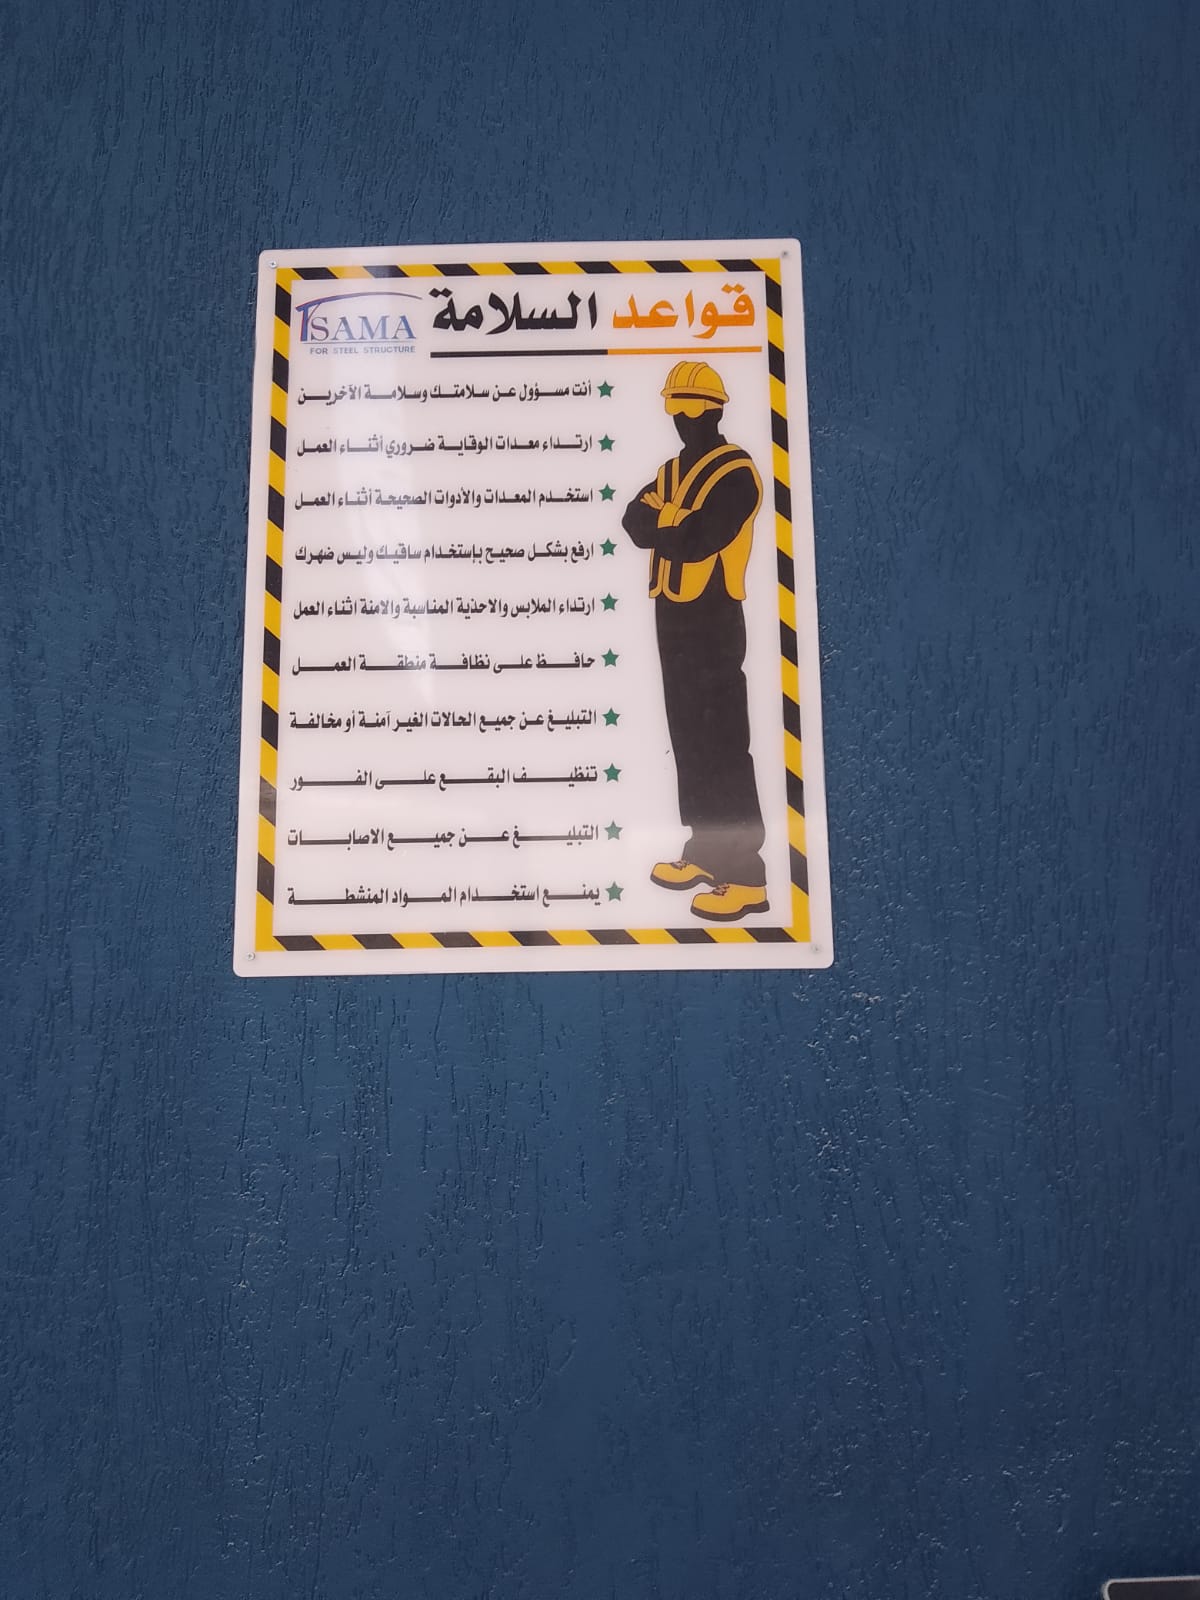 قواعد السلامة
SAMA
FOR STEEL STRUCTURE
أنت مسؤول عن سلامتك وسلامة الآخرين
ارتداء معدات الوقاية ضروري أثناء العمل
استخدم المعدات والأدوات الصحيحة أثناء العمل
ارفع بشكل صحيح بإستخدام ساقيك وليس ضهرك
ارتداء الملابس والاحذية المناسبة والامنة اثناء العمل
حافظ على نظافة منطقة العمل
التبليغ عن جميع الحالات الغير آمنة أو مخالفة
تنظيف البقع على الفور
التبليغ عن جميع الاصابات
يمنع استخدام المواد المنشطة